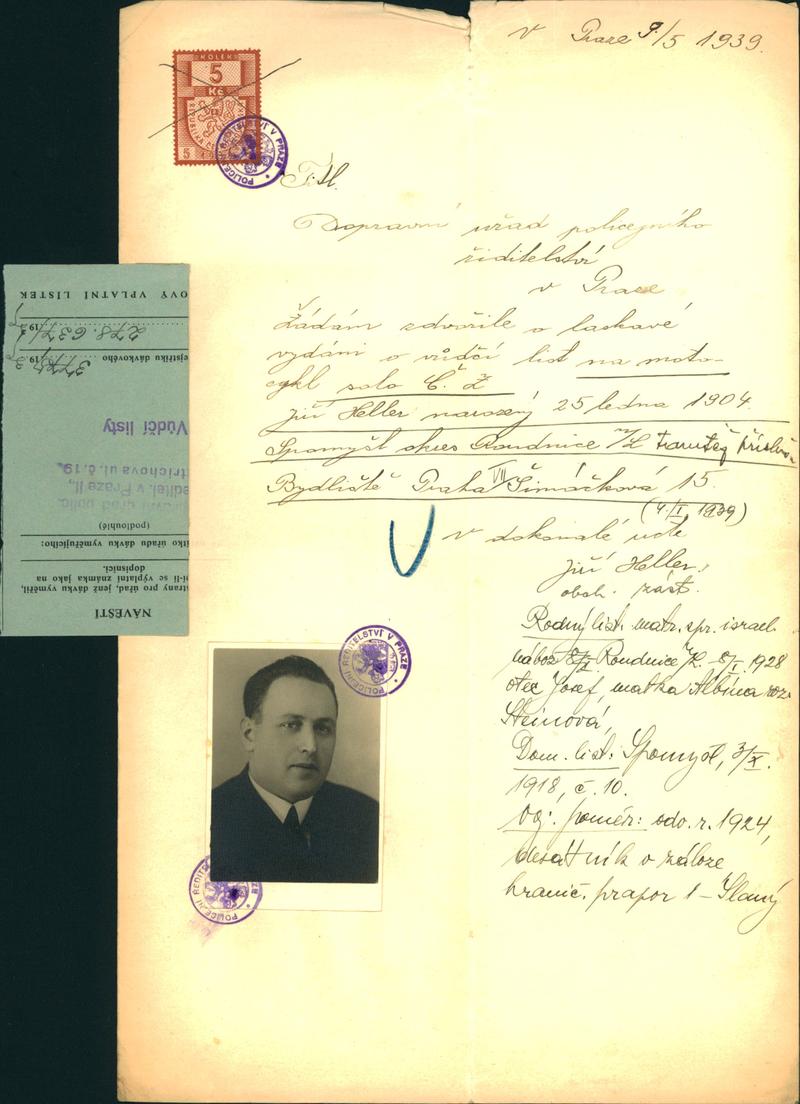 v Praze 9/5 1939.
KOLEK
5
Kč
5
POLICEJNÍ ŘEDITELSTVÍ V PRAZE
Dopravní uřad policejního
řiditelství
v Praze
Žádám zdvořile o laskavé
vydání o vůdčí list na moto-
cykl solo Č. Ž
Jiří Heller narozený 25 ledna 1904.
Spomyšl okres Roudnice n/L tamtéž přísluš.
Bydliště Praha VII Šimáčková 15.
(4./I. 1939)
v dokonalé úctě
Jiří Heller.
obch. zást.
Rodný list: matr. spr. israel.
nábož. Roudnice n/L. 1928
otec Josef, matka Albina roz.
Steinová,
Dom. list: Spomyšl, 3/X.
1918, č. 10.
Voj. poměr: odv. r. 1924,
desátník v záloze
hranič. prapor 1 – Slaný
POLICEJNÍ ŘEDITELSTVÍ V PRAZE
POLICEJNÍ ŘEDIT
NÁVĚSTÍ
strany pro úřad, jenž dávku vyměřil,
-li se výplatní známka jako na
dopisnici.
ítko úřadu dávku vyměřujícího:
(podlouhlé)
editel. v Praze II.,
trichova ul. č. 19.
Vůdčí listy
ejstříku dávkového
19
278.637/
19
OVÝ VPLATNÍ LÍSTEK